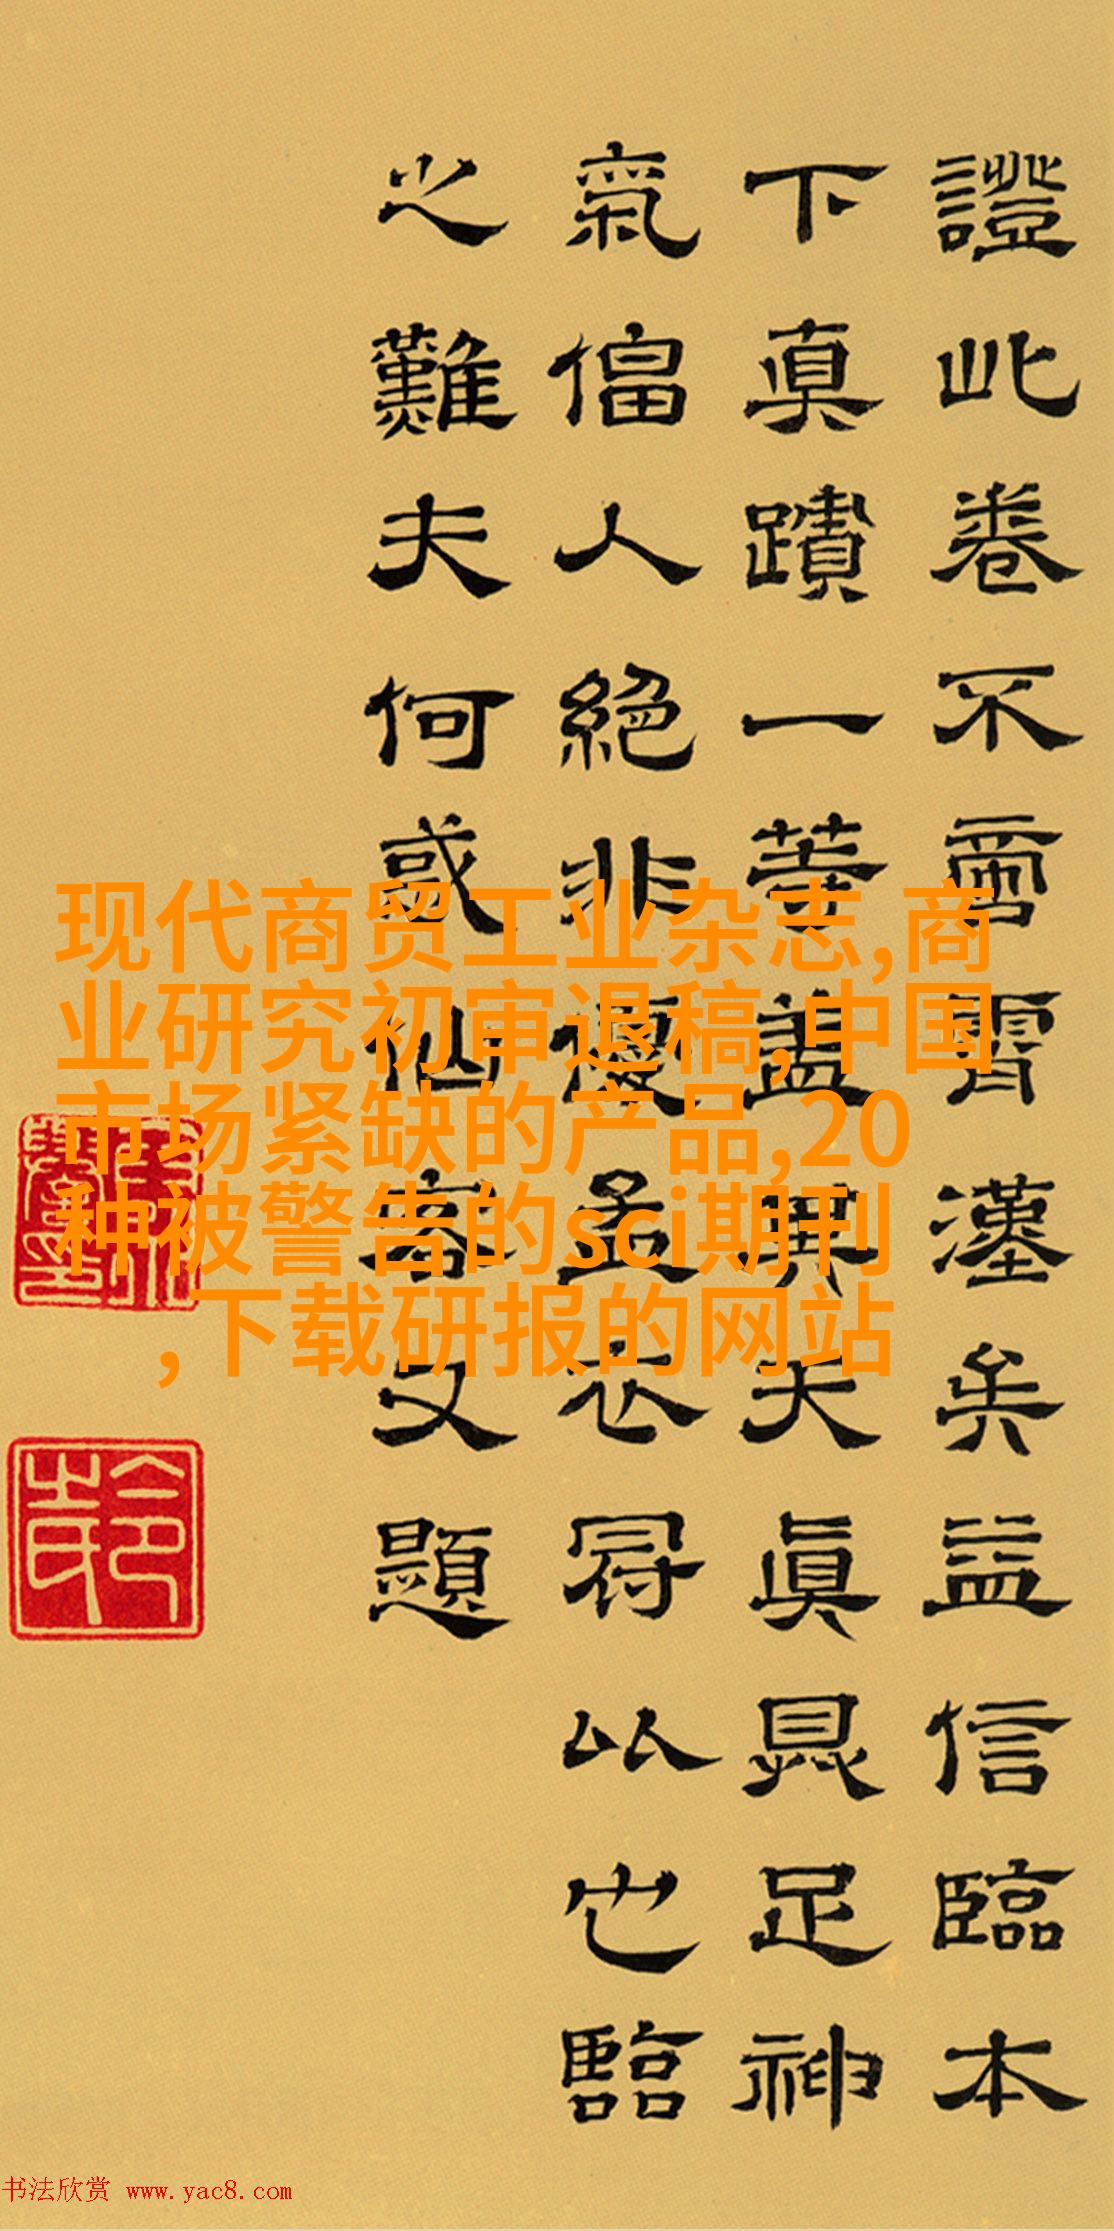 證此卷不啻霄漢矣益信臨本
下真蹟一等蓋其天真晃足神
氣偪人絕非優孟衣冠以也臨
之難夫何或似客又題
现代商贸工业杂志,商
业研究初审退稿,中国
市场紧缺的产品,20
种被警告的sci期刊
,下载研报的网站
书法欣赏 www.yac8.com